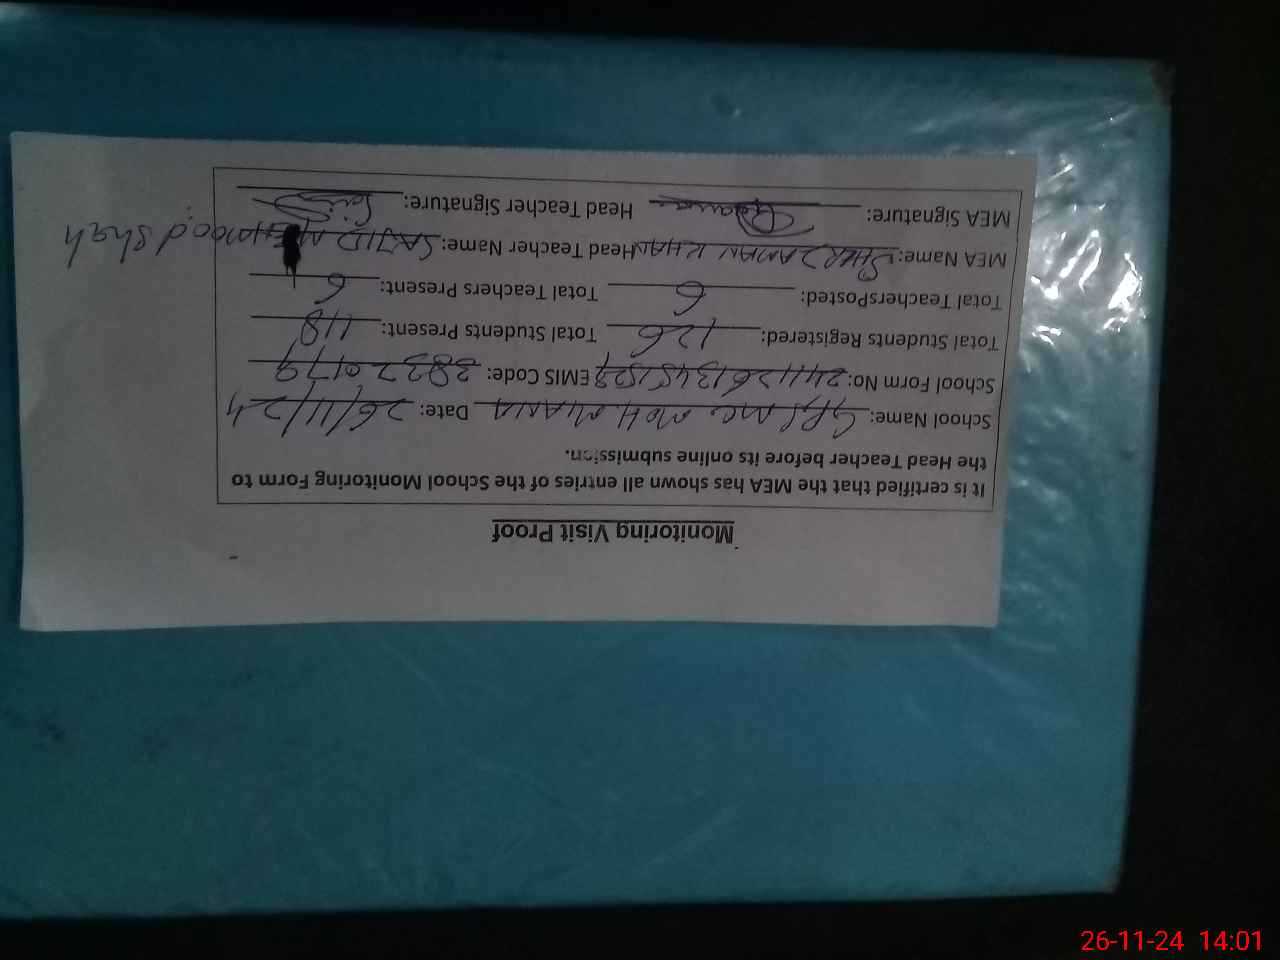 Monitoring Visit Proof
It is certified that the MEA has shown all entries of the School Monitoring Form to
the Head Teacher before its online submission.
School Name: MOH MIANA Date: 26/11/24
School Form No: EMIS Code: 38320179
Total Students Registered: 126 Total Students Present: 118
Total TeachersPosted: 6 Total Teachers Present: 6
MEA Name: SHER ZAMAN KHAN Head Teacher Name: SAJID MEHMOOD Shah
MEA Signature: Head Teacher Signature:
26-11-24 14:01